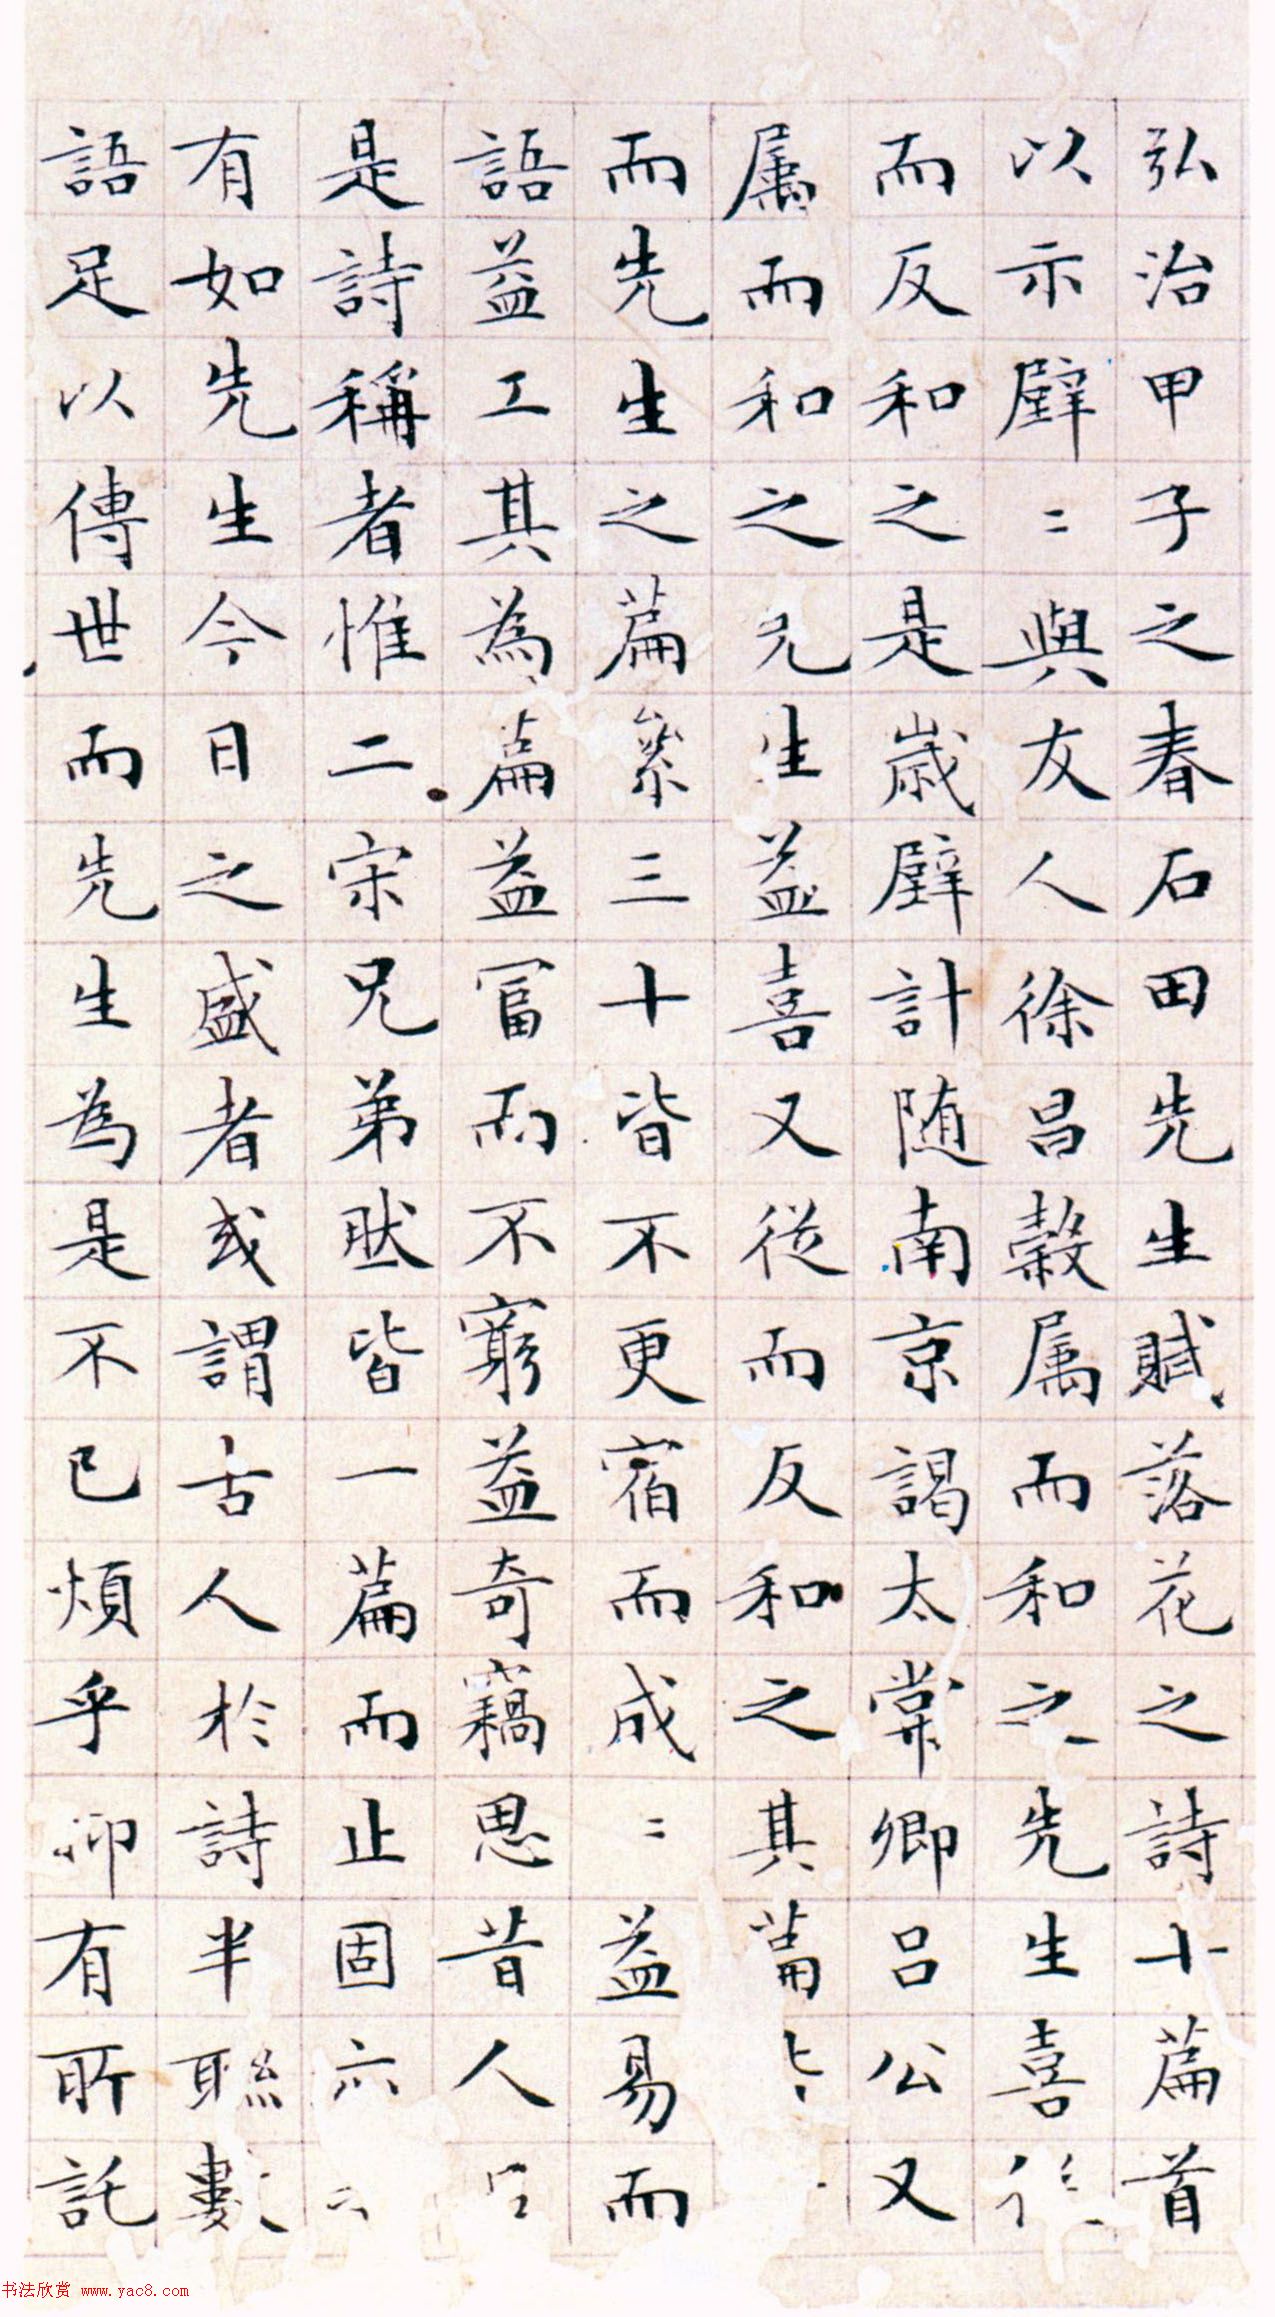 弘治甲子之春石田先生賦落花之詩十篇首
以示璧〻與友人徐昌榖属而和之先生喜從
而反和之是歲璧計随南京謁太常卿吕公又
属而和之先生益喜又從而反和之其篇皆
而先生之篇纍三十皆不更宿而成〻益易而
語益工其為篇益富而不窮益奇竊思昔人
是詩稱者惟二宋兄弟然皆一篇而止固六
有如先生今日之盛者或謂古人於詩半聮數
語足以傳世而先生為是不已煩乎抑有所託
书法欣赏 www.yac8.com